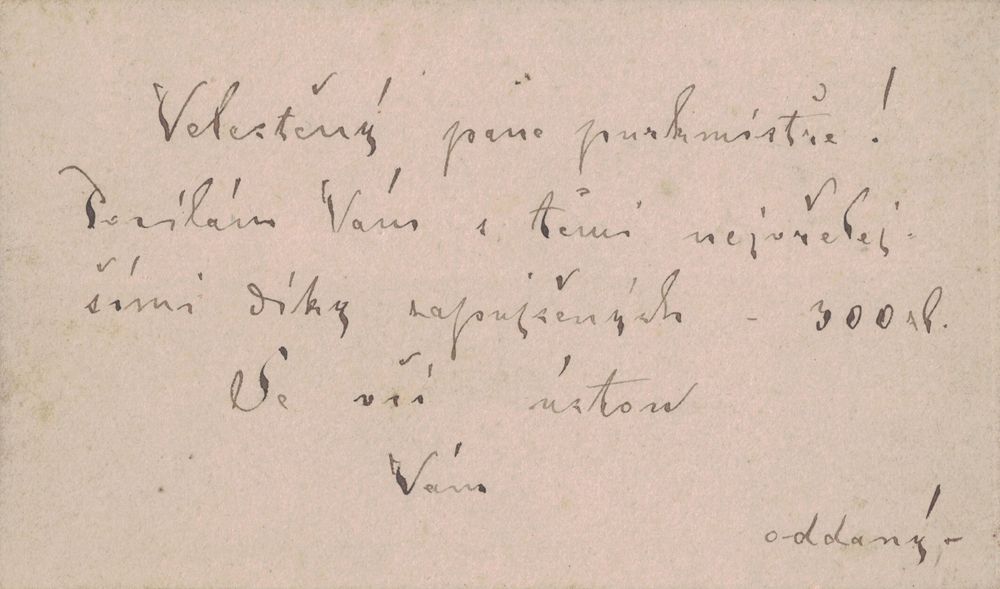 Velectěný pane purkmistře!
Posílám Vám s těmi nejvřelej-
šími díky zapujčených - 300 zl.
Se vší úctou
Vám
oddaný -